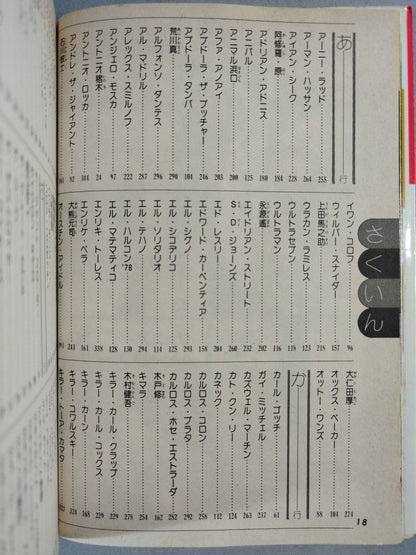 さくいん
あ行
アーニー・ラッド 255
アーマン・ハッサン 264
アイアン・シーク 228
阿修羅・原 184
アドリアン・アドニス 188
アニバル 180
アニマル浜口 125
アファ・アノアイ 245
アブドーラ・ザ・ブッチャー 155
アブドーラ・タンバ 104
荒川真 290
アルフォンソ・ダンテス 296
アル・マドリル 287
アレックス・スミルノフ 222
アンジェロ・モスカ 97
アントニオ猪木 24
アントニオ・ロッカ 344
アンドレ・ザ・ジャイアント 82
イワン・コロフ 96
ウィルバー・スナイダー 157
上田馬之助 218
ウラカン・ラミレス 123
ウルトラセブン 118
ウルトラマン 116
永源遙 219
エイドリアン・ストリート 232
S・D・ジョーンズ 200
エド・レスリー 260
エドワード・カーペンティア 204
エル・シグノ 158
エル・シコデリコ 293
エル・ソリタリオ 125
エル・テハノ 114
エル・ハルコン'78 294
エル・マテマティコ 130
エンリキ・トーレス 338
エンリケ・ベラ 161
大熊元司 243
オースチン・アイドル
大仁田厚 274
オックス・ベーカー 104
オットー・ワンズ 88
か行
カール・ゴッチ 61
ガイ・ミッチェル 237
カズウェル・マーチン 263
カト・クン・リー 124
カネック 112
カルロス・コロン 258
カルロス・プラタ 292
カルロス・ホセ・エストラーダ 282
木戸修 162
キマラ 254
木村健吾 278
キラー・カール・クラップ 276
キラー・カール・コックス 205
キラー・カーン 168
キラー・コワルスキ 324
キラー・トーア・カマタ
18